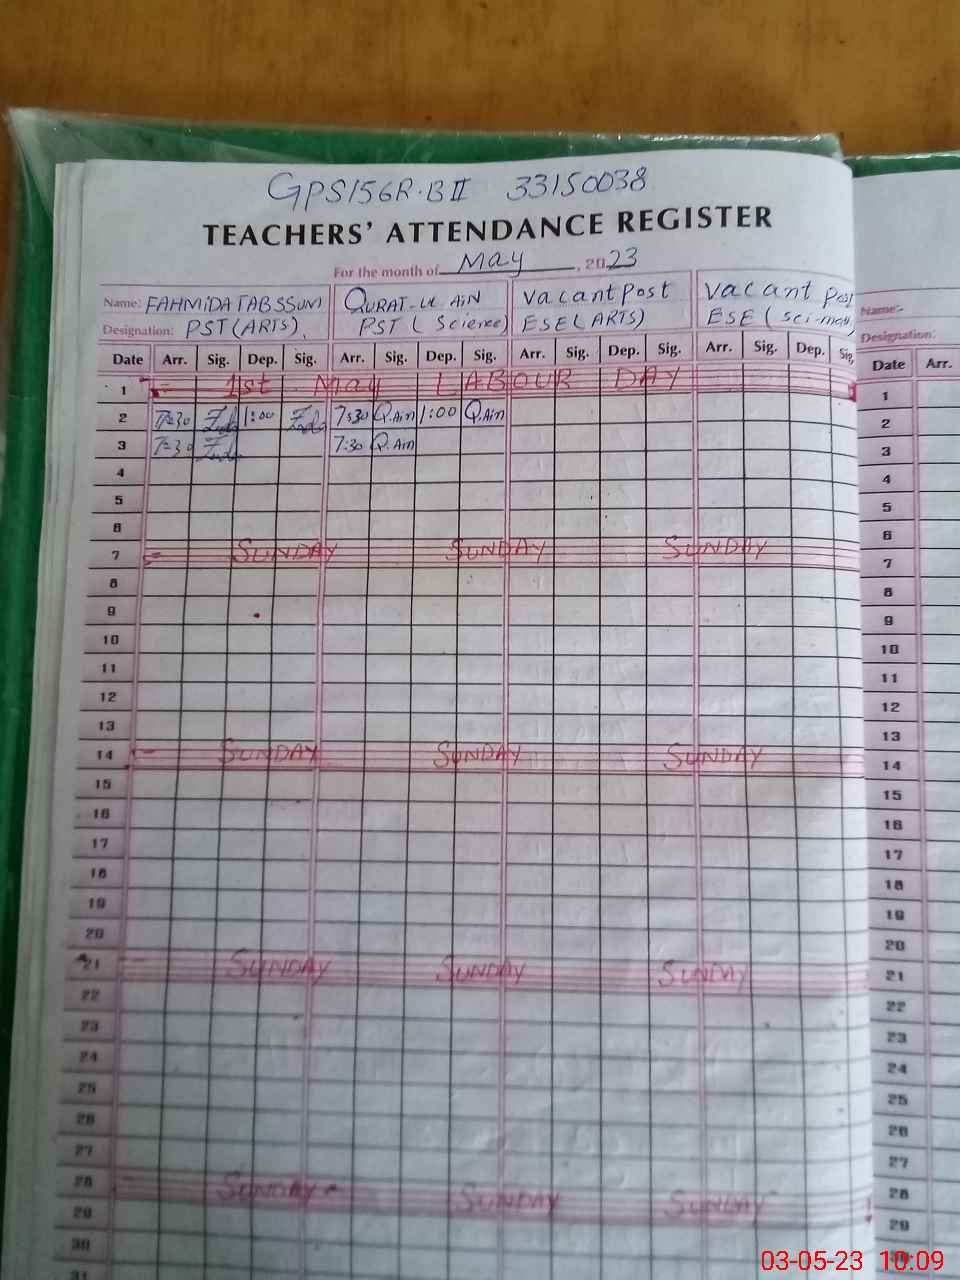 GPS156R.BII 33150038
TEACHERS' ATTENDANCE REGISTER
For the month of May, 2023
Name: FAHMIDA TABSSUM QURAT-UL AIN Vacant Post Vacant Post Name:
Designation: PST (ARTS) PST (Science) ESE (ARTS) ESE (Sci-math) Designation:
Date Arr. Sig. Dep. Sig. Arr. Sig. Dep. Sig. Arr. Sig. Dep. Sig. Arr. Sig. Dep. Sig. Date Arr.
1 1st May LABOUR DAY 1
2 7:30 1:00 7:30 Q.Ain 1:00 Q.Ain 2
3 7:30 7:30 Q.Ain 3
4 4
5 5
6 6
7 SUNDAY SUNDAY SUNDAY 7
8 8
9 9
10 10
11 11
12 12
13 13
14 SUNDAY SUNDAY SUNDAY 14
15 15
16 16
17 17
18 18
19 19
20 20
21 SUNDAY SUNDAY SUNDAY 21
22 22
23 23
24 24
25 25
26 26
27 27
28 SUNDAY SUNDAY SUNDAY 28
29 29
30 30
31
03-05-23 10:09